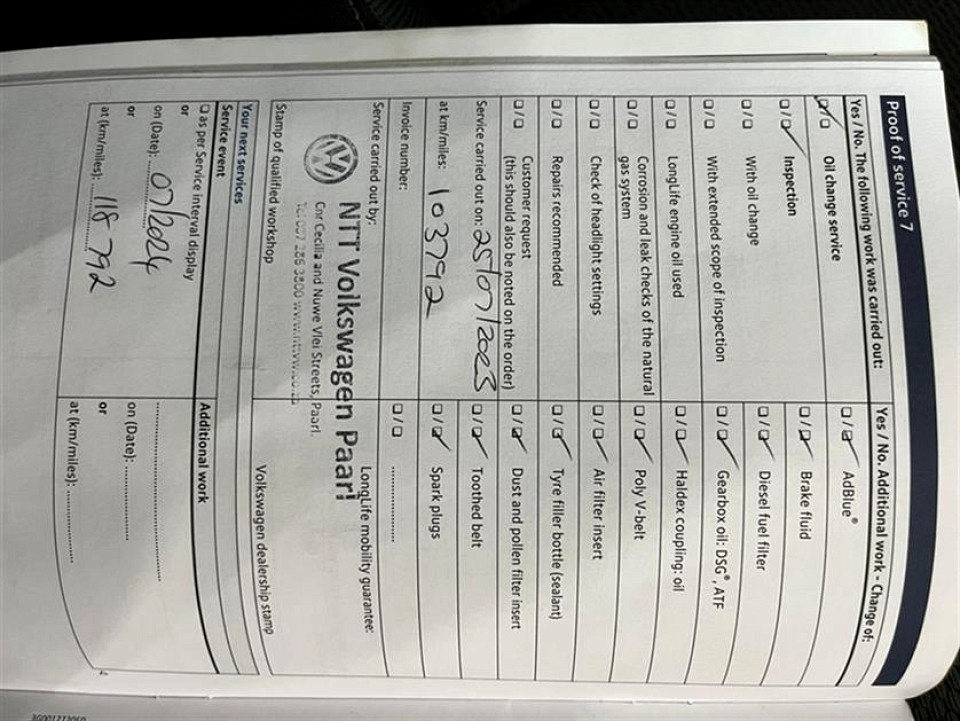 Proof of service 7
Yes / No. The following work was carried out:
☑/☐ Oil change service
☐/☑ Inspection
☐/☐ With oil change
☐/☐ With extended scope of inspection
☐/☐ LongLife engine oil used
☐/☐ Corrosion and leak checks of the natural
gas system
☐/☐ Check of headlight settings
☐/☐ Repairs recommended
☐/☐ Customer request
(this should also be noted on the order)
Service carried out on: 25/07/2023
at km/miles: 103792
Invoice number:
Yes / No. Additional work - Change of:
☐/☑ AdBlue®
☐/☑ Brake fluid
☐/☑ Diesel fuel filter
☐/☑ Gearbox oil: DSG®, ATF
☐/☑ Haldex coupling: oil
☐/☑ Poly V-belt
☐/☑ Air filter insert
☐/☑ Tyre filler bottle (sealant)
☐/☑ Dust and pollen filter insert
☐/☑ Toothed belt
☐/☑ Spark plugs
☐/☐ ..................
Service carried out by:
LongLife mobility guarantee:
NTT Volkswagen Paarl
Cnr Cecilia and Nuwe Vlei Streets, Paarl.
Stamp of qualified workshop
Volkswagen dealership stamp
Your next services
Service event
☐ as per Service interval display
or
on (Date): 07/2024
or
at (km/miles): 118 792
Additional work
..................
on (Date): ..................
or
at (km/miles): ..................